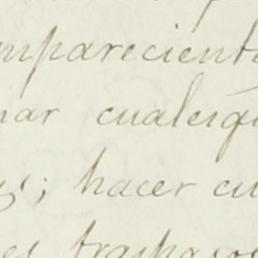 mparecient
nar cualesq
s; hacer cu
es traspaso